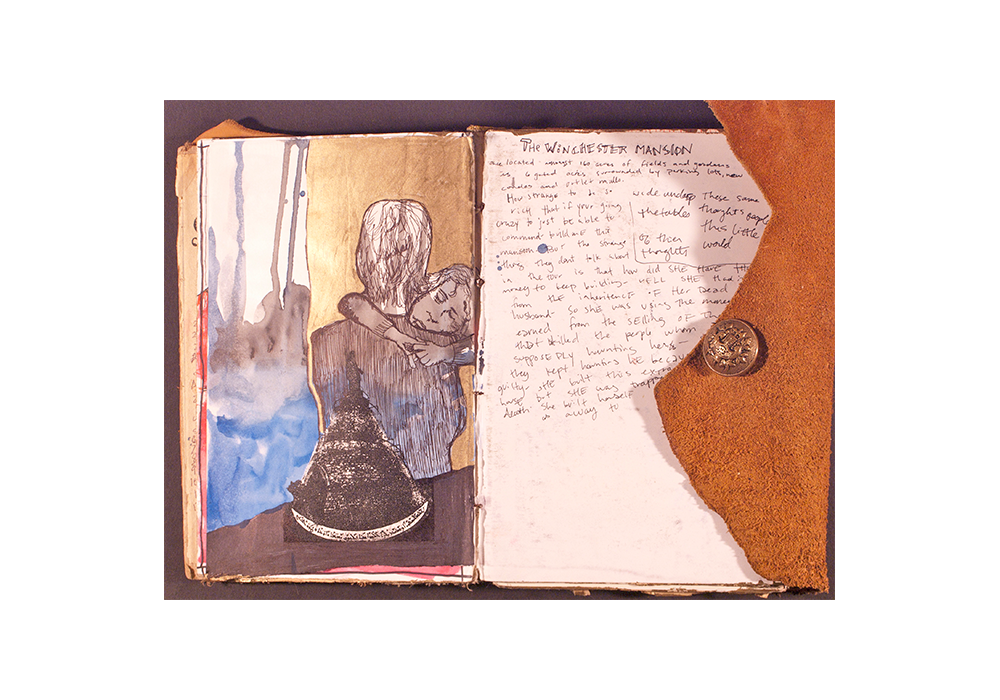 THE WINCHESTER MANSION
once located amongst 160 acres of fields and gardens
is 6 gated acres surrounded by parking lots, new
condos and outlet malls.
How strange to be so
rich that if your going
crazy to just be able to
command build me this
mansion. But the strange
thing they dont talk about
wide under
the tables
of their
thoughts
These same
thoughts people
this little
world
in the tour is that how did SHE HAVE THE
money to keep building. WELL SHE HAD
from THE inheritence OF HER DEAD
husband. So she was using the money
earned from the selling OF TH
that killed the people whom
supposedly haunting here
they kept haunting be becau
guilty. SHE built this
house but SHE was trapp
death. She built herself
as a way to